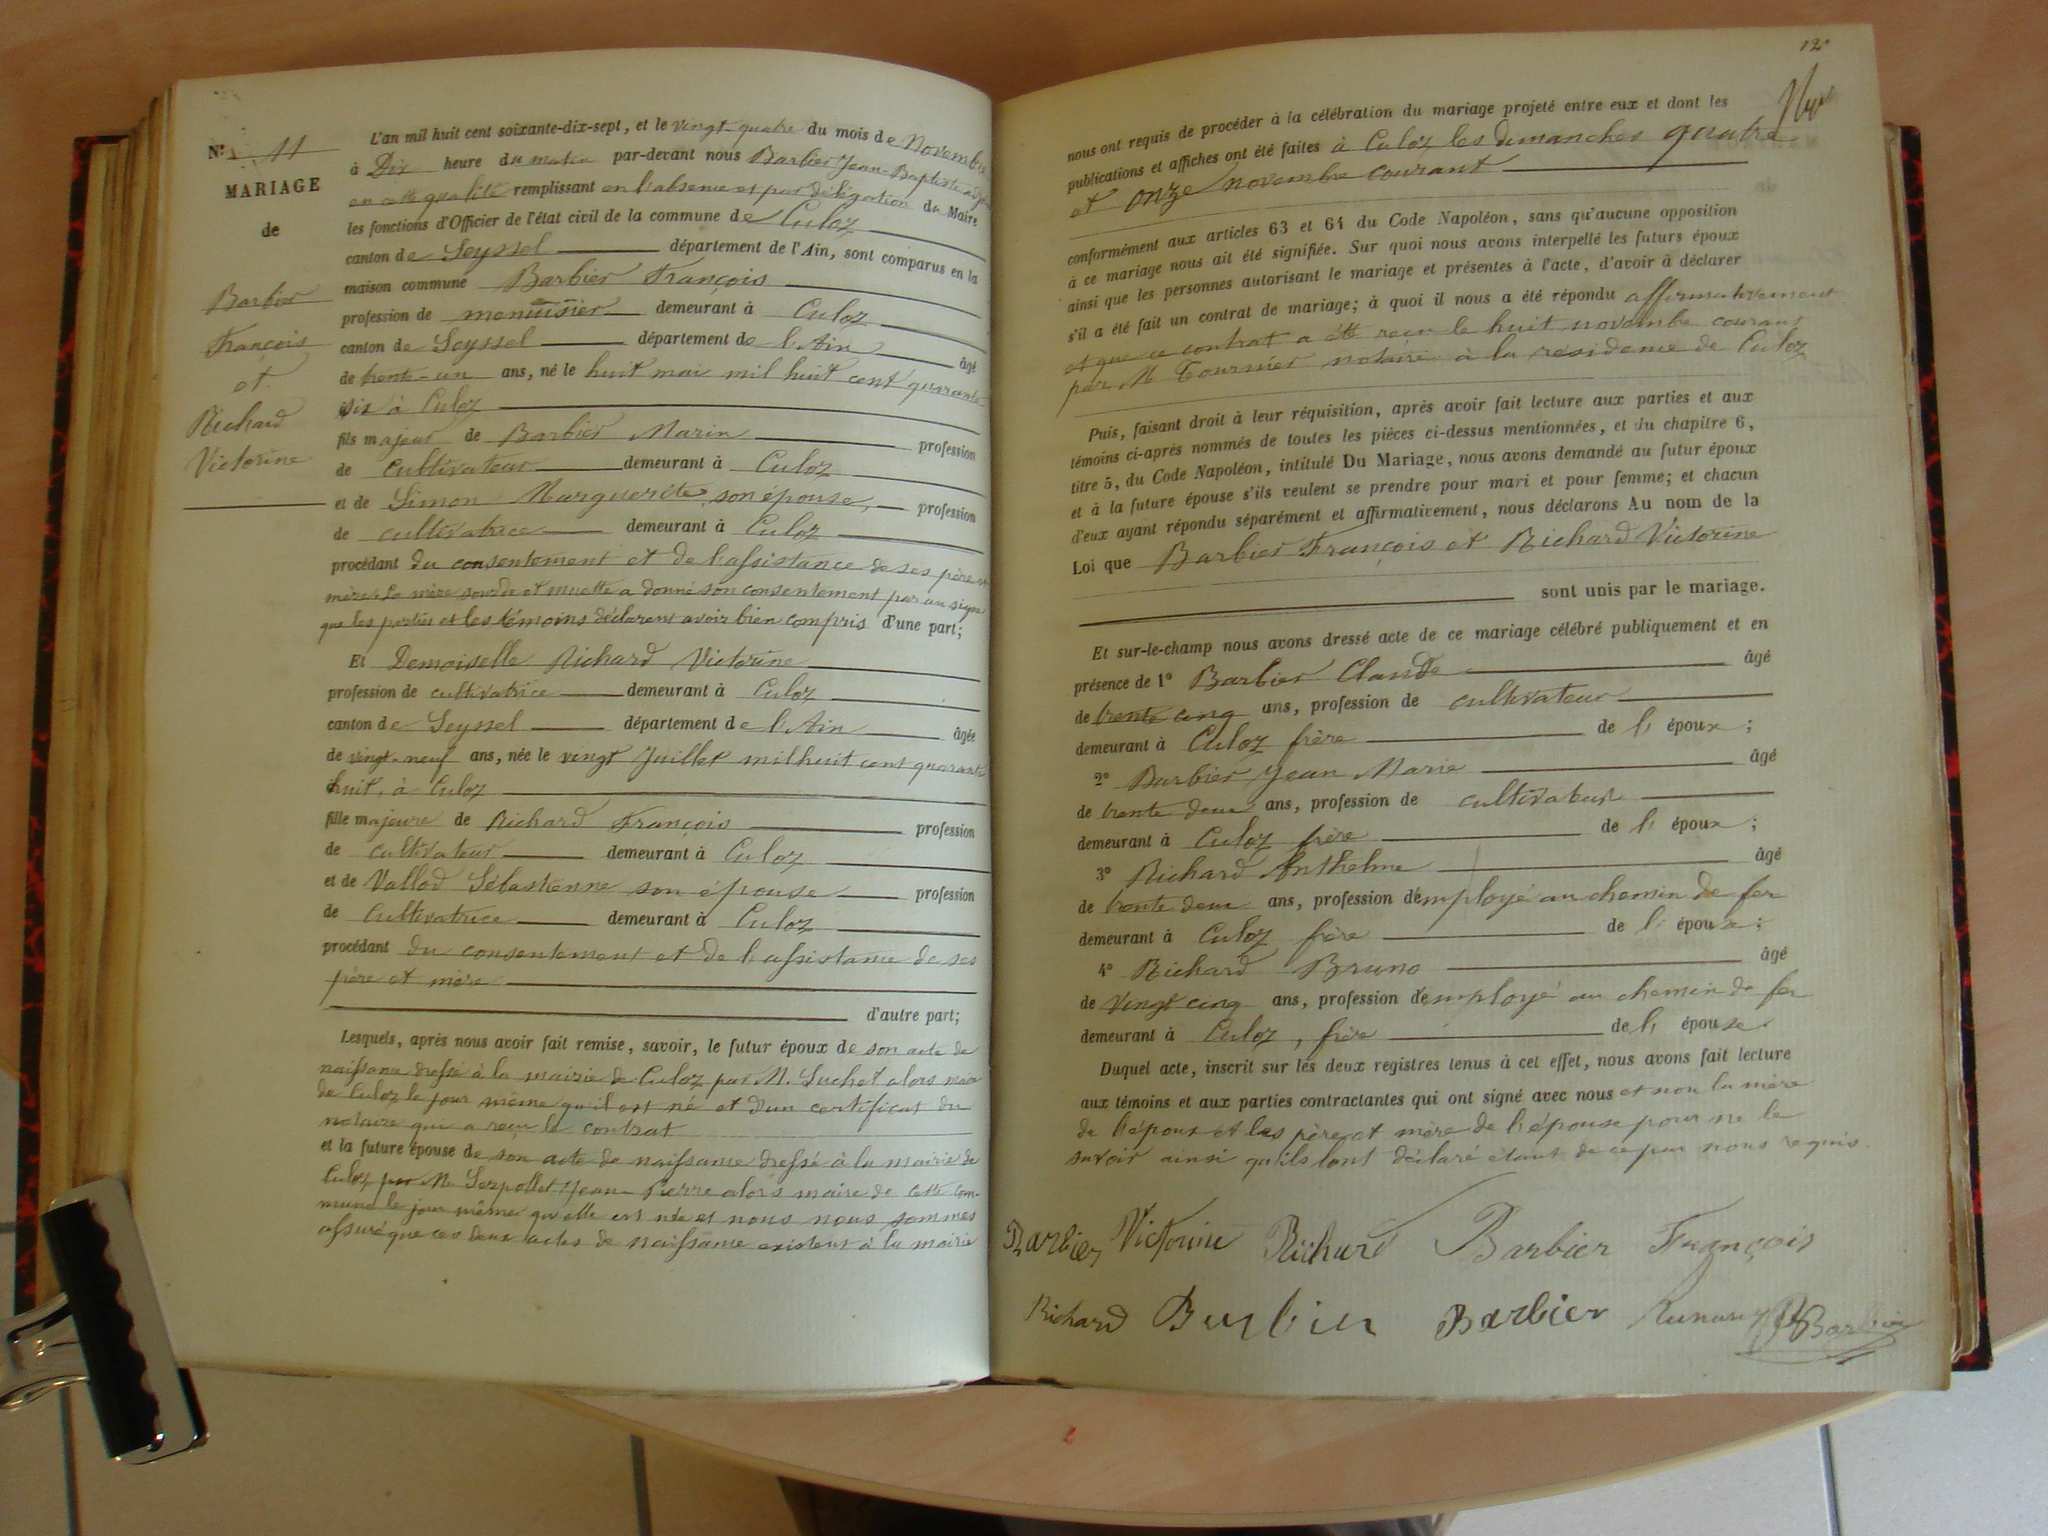 N° 11
MARIAGE
de
Barbier
François
et
Richard
Victorine
L'an mil huit cent soixante-dix-sept, et le vingt-quatre du mois de Novembre
à Dix heure du matin par-devant nous Barbier Jean-Baptiste adjoint
en cette qualité remplissant en l'absence et par délégation du Maire
les fonctions d'Officier de l'état civil de la commune de Culoz
canton de Seyssel département de l'Ain, sont comparus en la
maison commune Barbier François
profession de menuisier demeurant à Culoz
canton de Seyssel département de l'Ain âgé
de trente-un ans, né le huit mai mil huit cent quarante
six à Culoz
fils majeur de Barbier Marin profession
de cultivateur demeurant à Culoz
et de Simon Marguerite, son épouse, profession
de cultivatrice demeurant à Culoz
procédant du consentement et de l'assistance de ses père et
mère. La mère sourde et muette a donné son consentement par un signe
que les parties et les témoins déclarent avoir bien compris d'une part;
Et Demoiselle Richard Victorine
profession de cultivatrice demeurant à Culoz
canton de Seyssel département de l'Ain âgée
de vingt-neuf ans, née le vingt Juillet mil huit cent quarante
huit, à Culoz
fille majeure de Richard François profession
de cultivateur demeurant à Culoz
et de Vallod Sébastienne son épouse profession
de Cultivatrice demeurant à Culoz
procédant du consentement et de l'assistance de ses
père et mère
d'autre part;
Lesquels, après nous avoir fait remise, savoir, le futur époux de son acte de
naissance dressé à la mairie de Culoz par M. Suchet alors maire
de Culoz le jour même qu'il est né et d'un certificat du
notaire qui a reçu le contrat
et la future épouse de son acte de naissance dressé à la mairie de
Culoz par M. Serpollet Jean-Pierre alors maire de cette com-
mune le jour même qu'elle est née et nous nous sommes
assuré que ces deux actes de naissance existent à la mairie
12
nous ont requis de procéder à la célébration du mariage projeté entre eux et dont les
publications et affiches ont été faites à Culoz les dimanches quatre
et onze novembre courant
conformément aux articles 63 et 64 du Code Napoléon, sans qu'aucune opposition
à ce mariage nous ait été signifiée. Sur quoi nous avons interpellé les futurs époux
ainsi que les personnes autorisant le mariage et présentes à l'acte, d'avoir à déclarer
s'il a été fait un contrat de mariage; à quoi il nous a été répondu affirmativement
et que ce contrat a été reçu le huit novembre courant
par M Tournier notaire à la résidence de Culoz
Puis, faisant droit à leur réquisition, après avoir fait lecture aux parties et aux
témoins ci-après nommés de toutes les pièces ci-dessus mentionnées, et du chapitre 6,
titre 5, du Code Napoléon, intitulé Du Mariage, nous avons demandé au futur époux
et à la future épouse s'ils veulent se prendre pour mari et pour femme; et chacun
d'eux ayant répondu séparément et affirmativement, nous déclarons Au nom de la
Loi que Barbier François et Richard Victorine
sont unis par le mariage.
Et sur-le-champ nous avons dressé acte de ce mariage célébré publiquement et en
présence de 1° Barbier Claude âgé
de trente cinq ans, profession de cultivateur
demeurant à Culoz frère de l' époux;
2° Barbier Jean Marie âgé
de trente deux ans, profession de cultivateur
demeurant à Culoz frère de l' époux;
3° Richard Anthelme âgé
de trente deux ans, profession d'employé au chemin de fer
demeurant à Culoz, frère de l' épouse;
4° Richard Bruno âgé
de vingt cinq ans, profession d'employé au chemin de fer
demeurant à Culoz, frère de l' épouse.
Duquel acte, inscrit sur les deux registres tenus à cet effet, nous avons fait lecture
aux témoins et aux parties contractantes qui ont signé avec nous et non la mère
de l'époux et les père et mère de l'épouse pour ne le
savoir ainsi qu'ils l'ont déclaré étant de ce par nous requis.
Barbier Victorine Richard Barbier François
Richard Barbier Barbier JB Barbier